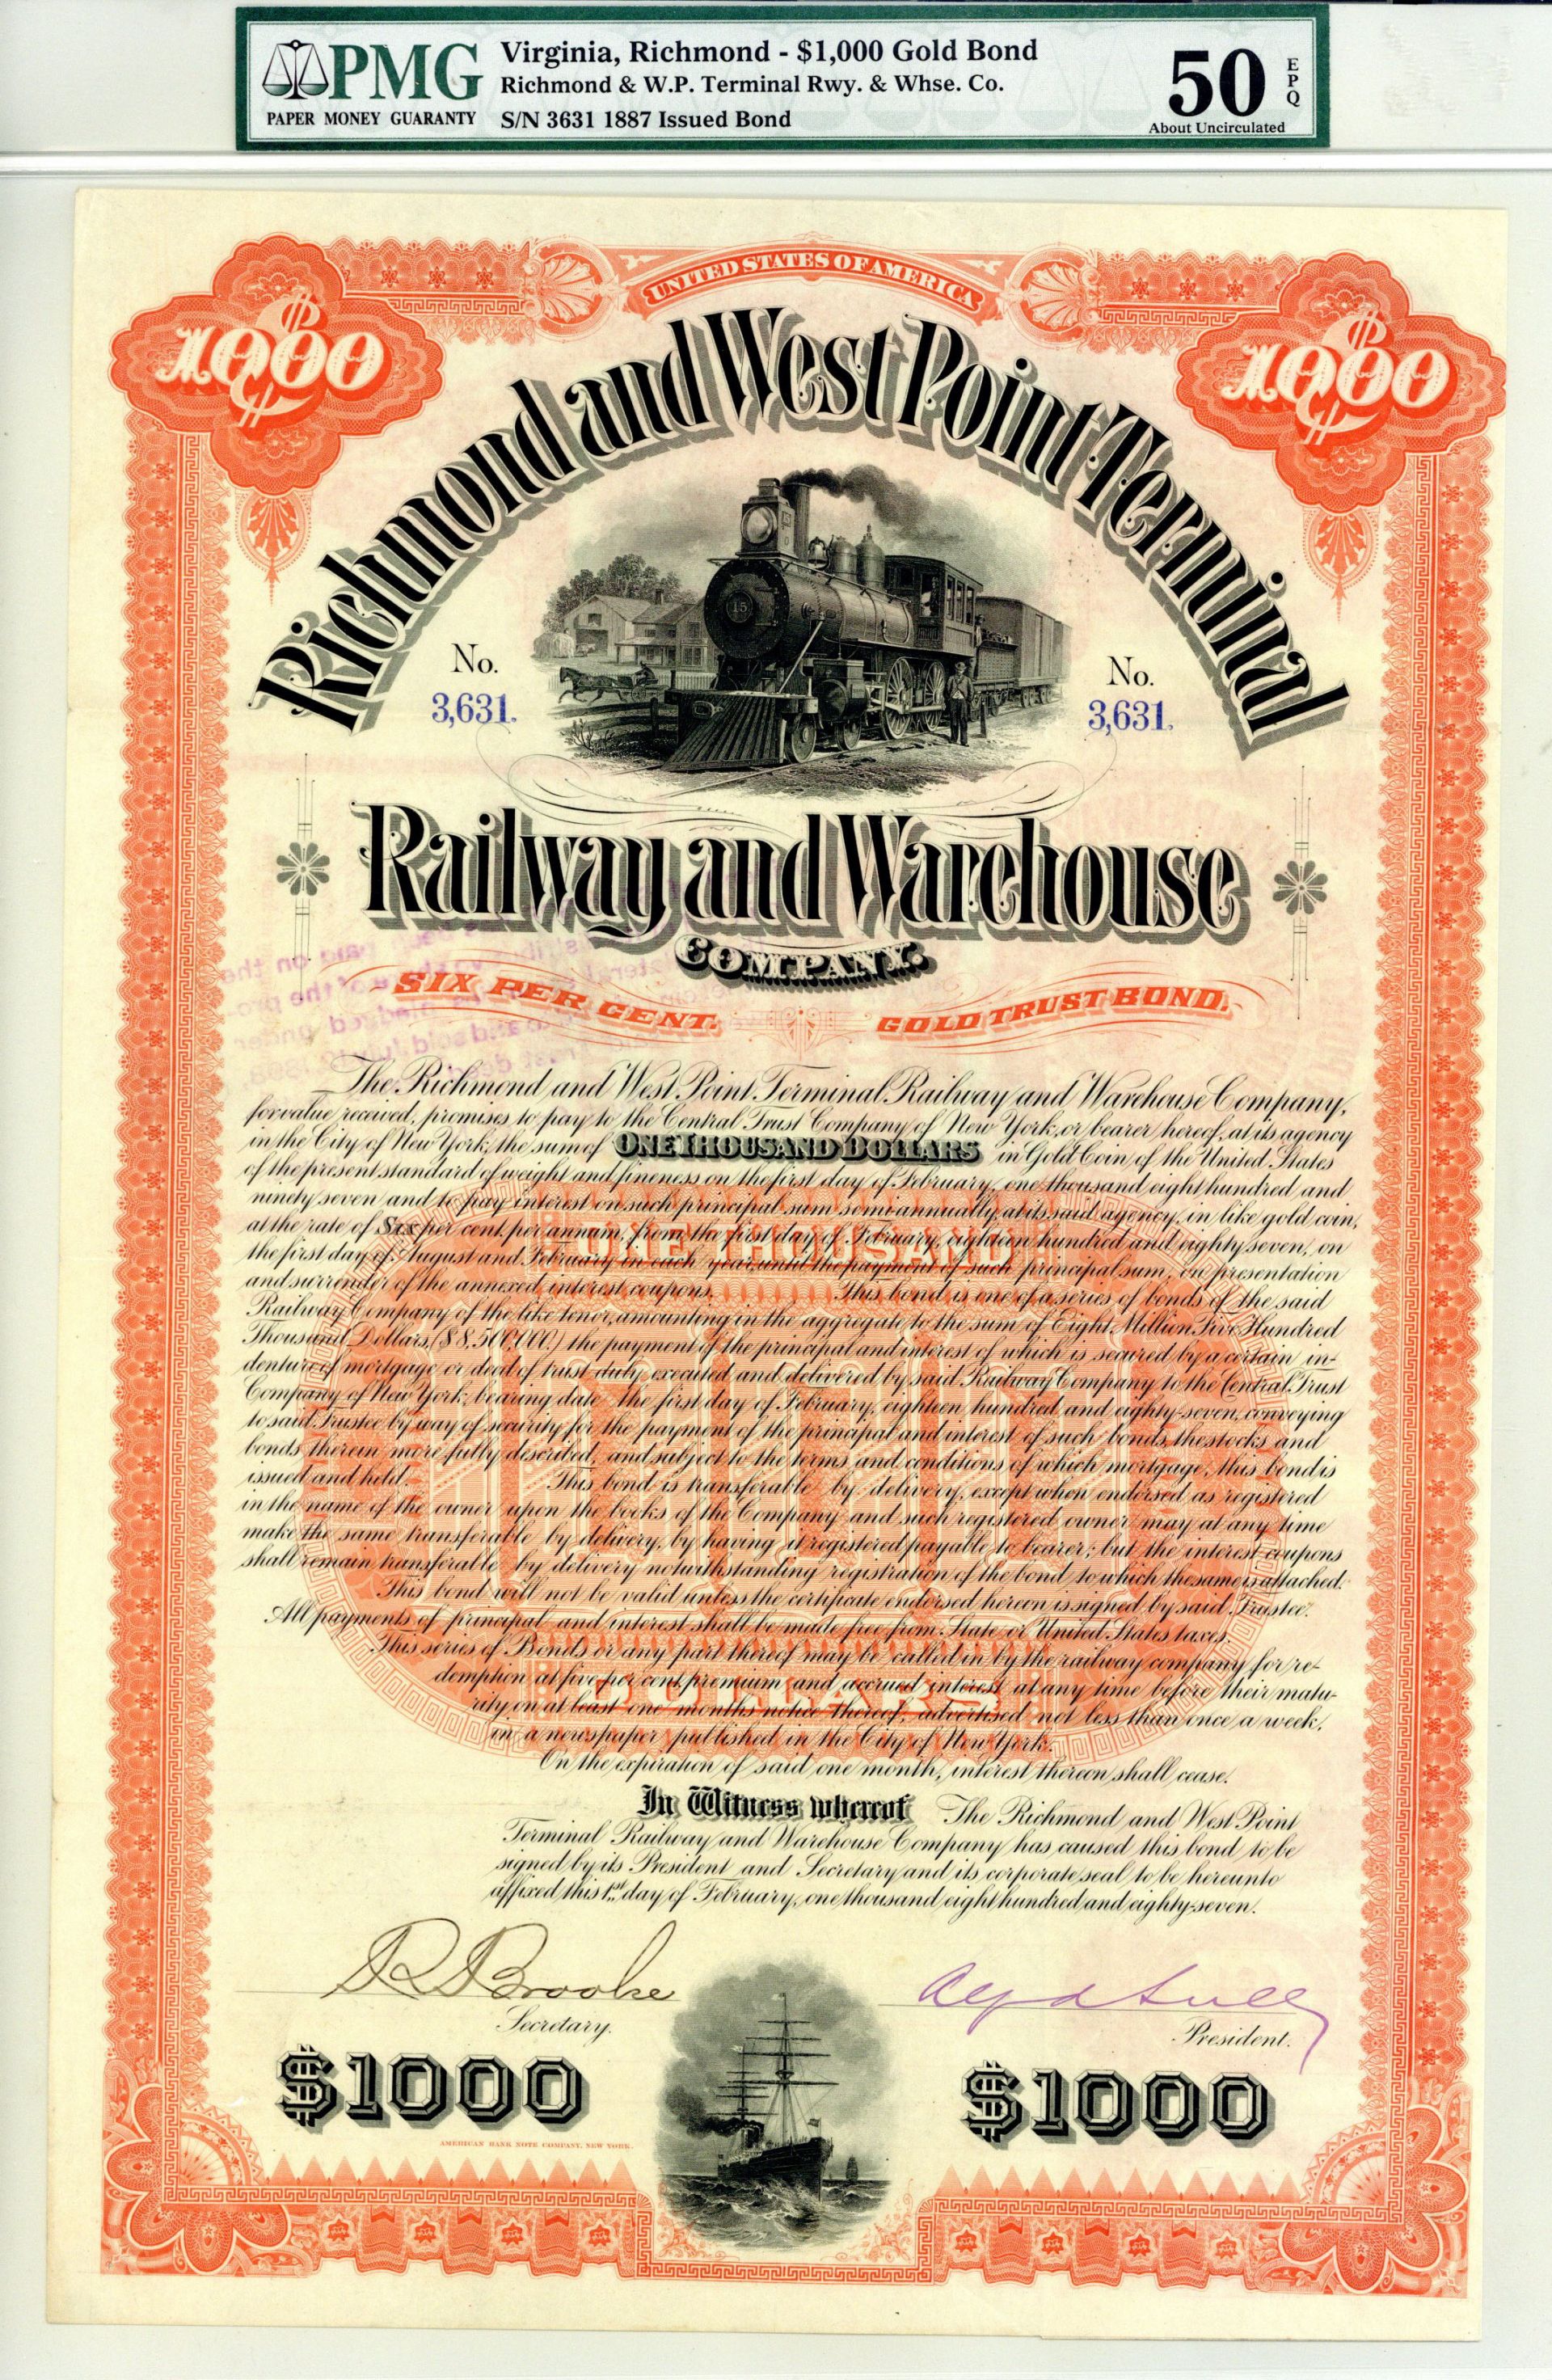 PMG
PAPER MONEY GUARANTY
Virginia, Richmond - $1,000 Gold Bond
Richmond & W.P. Terminal Rwy. & Whse. Co.
S/N 3631 1887 Issued Bond
50 EPQ
About Uncirculated
UNITED STATES OF AMERICA
$1000
$1000
Richmond and West Point Terminal
15
No.
3,631.
No.
3,631.
Railway and Warehouse
COMPANY.
SIX PER CENT. GOLD TRUST BOND.
The Richmond and West Point Terminal Railway and Warehouse Company,
for value received, promises to pay to the Central Trust Company of New York, or bearer hereof, at its agency
in the City of New York, the sum of ONE THOUSAND DOLLARS in Gold Coin of the United States
of the present standard of weight and fineness on the first day of February, one thousand eight hundred and
ninety seven and to pay interest on such principal sum semi-annually, at its said agency, in like gold coin,
at the rate of Six per cent. per annum, from the first day of February, eighteen hundred and eighty seven, on
the first day of August and February in each year, until the payment of such principal sum, on presentation
and surrender of the annexed interest coupons. This bond is one of a series of bonds of the said
Railway Company of the like tenor, amounting in the aggregate to the sum of Eight Million Five Hundred
Thousand Dollars, ($8,500,000.) the payment of the principal and interest of which is secured by a certain in-
denture of mortgage or deed of trust duly executed and delivered by said Railway Company to the Central Trust
Company of New York, bearing date the first day of February, eighteen hundred and eighty-seven, conveying
to said Trustee by way of security for the payment of the principal and interest of such bonds, the stocks and
bonds therein more fully described, and subject to the terms and conditions of which mortgage, this bond is
issued and held. This bond is transferable by delivery, except when endorsed as registered
in the name of the owner upon the books of the Company and such registered owner may at any time
make the same transferable by delivery, by having it registered payable to bearer; but the interest coupons
shall remain transferable by delivery notwithstanding registration of the bond to which the same is attached.
This bond will not be valid unless the certificate endorsed hereon is signed by said Trustee.
All payments of principal and interest shall be made free from State or United States taxes.
This series of Bonds or any part thereof may be called in by the railway company for re-
demption at five per cent premium and accrued interest at any time before their matu-
rity on at least one months notice thereof, advertised not less than once a week,
in a newspaper published in the City of New York.
On the expiration of said one month, interest thereon shall cease.
ONE THOUSAND
DOLLARS
In Witness whereof The Richmond and West Point
Terminal Railway and Warehouse Company has caused this bond to be
signed by its President and Secretary and its corporate seal to be hereunto
affixed this 1st day of February, one thousand eight hundred and eighty-seven.
R Brooke
Secretary.
President.
$1000
$1000
AMERICAN BANK NOTE COMPANY, NEW YORK.